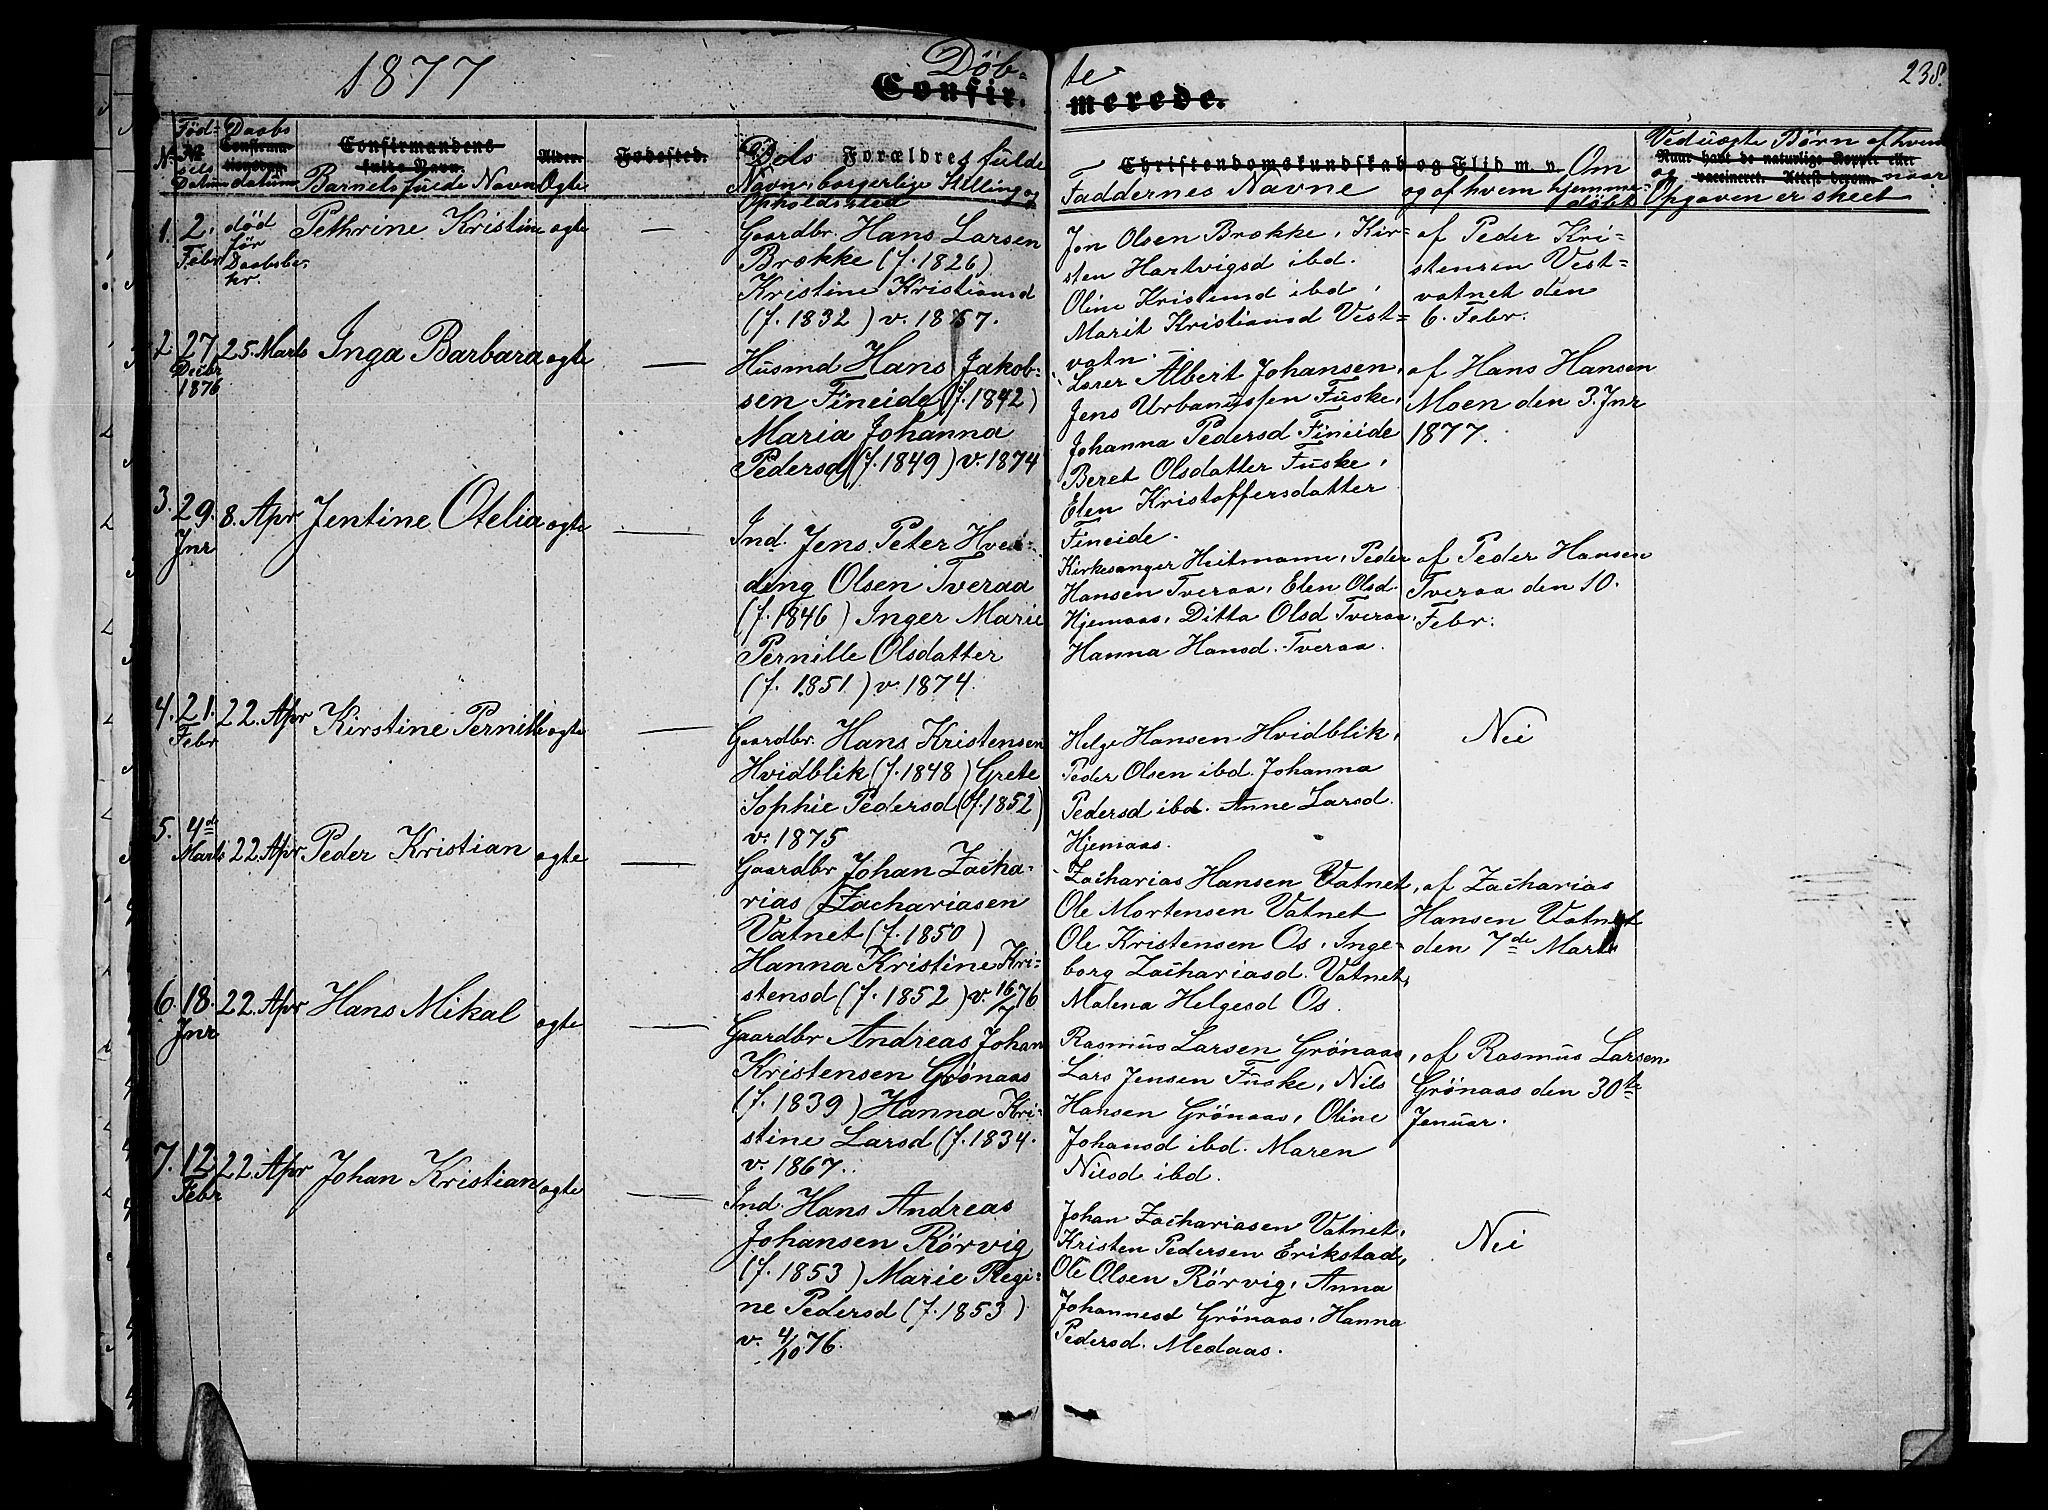 1877
Döb-
te
238.
Confir-
merede.
No
Föd-
sels
Datum
Daabs
Confirma-
tionsdag.
datum
Confirmandens
fulde Navn.
Barnets fulde Navn
Alder.
Ægte
Födested.
Dets Forældres fulde
Navn, borgerlige Stilling og
Opholdssted
Christendomskundskab og Flid m. v.
Faddernes Navne
Om
og af hvem hjemme-
döbt
Veduægte Börn af hvem
Naar havt de naturlige Kopper eller
og vaccineret. Attest derom. naar
Opgaven er skeet
1. 2.
Febr
död
för
Daabsbe-
kr.
Pethrine Kristine
ægte
Gaardbr. Hans Larsen
Brække (f. 1826)
Kristine Kristiansd
(f. 1832) v. 1857.
Jon Olsen Brække, Kir-
sten Hartvigsd ibd.
Oline Kristensd ibd,
Marit Kristiansd Vest-
vatn.
af Peder Kri-
stensen Vest-
vatnet den
6. Febr.
2. 27
Decbr
1876
25. Marts
Inga Barbara
ægte
Husmd Hans Jakob-
sen Fineide (f. 1842)
Maria Johanna
Pedersd (f. 1849) v. 1874
Lærer Albert Johansen,
Jens Urbanussen Fuske,
Johanna Pedersd Fineide
Beret Olsdatter Fuske,
Elen Kristoffersdatter
Fineide.
af Hans Hansen
Moen den 3. Jnr
1877.
3. 29.
Jnr
8. Apr
Jentine Otelia
ægte
Ind. Jens Peter Hvei-
ding Olsen Tveraa
(f. 1846) Inger Marie
Pernille Olsdatter
(f. 1851) v. 1874.
Kirkesanger Heitmann, Peder
Hansen Tveraa, Elen Olsd.
Hjemaas, Ditta Olsd Tveraa,
Hanna Hansd. Tveraa.
af Peder Hansen
Tveraa den 10.
Febr.
4. 21.
Febr
22. Apr
Kirstine Pernille
ægte
Gaardbr. Hans Kristensen
Hvidblik (f. 1848) Grete
Sophie Pedersd (f. 1852)
v. 1875
Helge Hansen Hvidblik,
Peder Olsen ibd. Johanna
Pedersd ibd. Anne Larsd.
Hjemaas.
Nei
5. 4de
Marts
22. Apr
Peder Kristian
ægte
Gaardbr Johan Zacha-
rias Zachariasen
Vatnet (f. 1850)
Hanna Kristine Kri-
stensd (f. 1852) v. 16/7 76
Zacharias Hansen Vatnet,
Ole Mortensen Vatnet
Ole Kristensen Os, Inge-
borg Zachariasd. Vatnet,
Malena Helgesd Os.
af Zacharias
Hansen Vatnet
den 7de Marts
6. 18.
Jnr
22. Apr
Hans Mikal
ægte
Gaardbr Andreas Johan
Kristensen Grönaas
(f. 1839) Hanna Kri-
stine Larsd (f. 1834.
v. 1867.
Rasmus Larsen Grönaas,
Lars Jensen Fuske, Nils
Hansen Grönaas, Oline
Johansd ibd. Maren
Nilsd ibd.
af Rasmus Larsen
Grönaas den 30te
Januar.
7. 12
Febr
22. Apr
Johan Kristian
ægte
Ind. Hans Andreas
Johansen Rörvig
(f. 1853) Marie Regi-
ne Pedersd (f. 1853)
v. 4/10 76.
Johan Zachariasen Vatnet,
Kristen Pedersen Erikstad,
Ole Olsen Rörvig, Anna
Johannesd Grönaas, Hanna
Pedersd. Medaas.
Nei